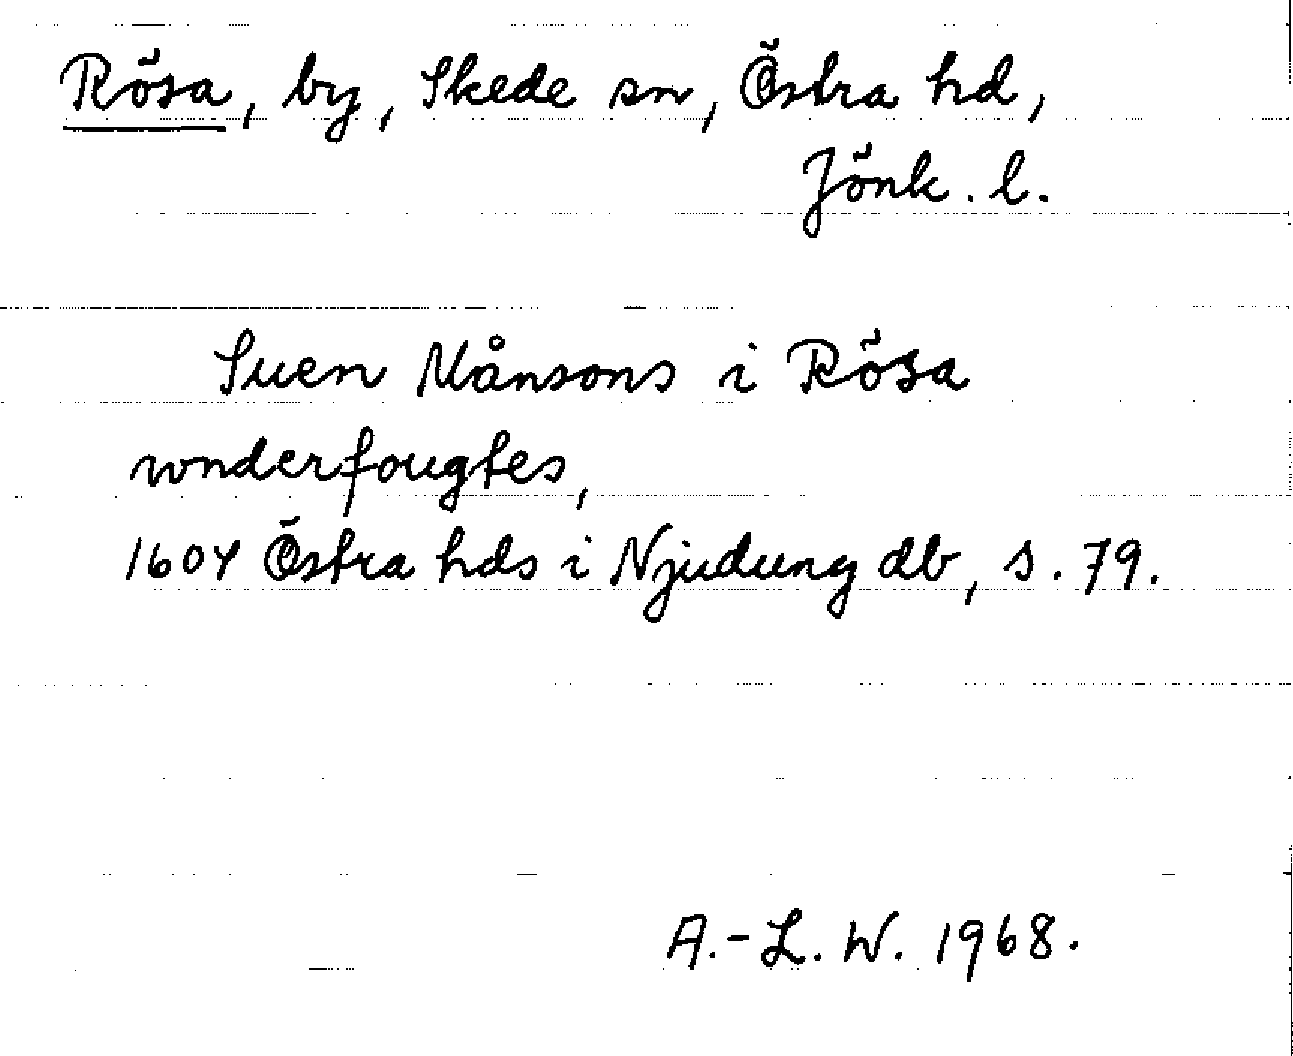 Rösa, by, Skede sn, Östra hd,
Jönk. l.
Suen Månsons i Rösa
wnderfougtes,
1604 Östra hds i Njudung db, s. 79.
A.-L. W. 1968.